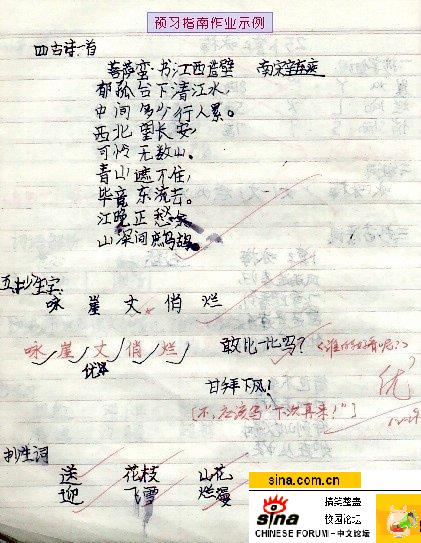 预习指南作业示例
四古诗一首
菩萨蛮·书江西造壁 南宋辛弃疾
郁孤台下清江水，
中间多少行人累。
西北望长安，
可怜无数山。
青山遮不住，
毕竟东流去。
江晚正愁余
山深闻鹧鸪
五、抄生字
咏 崖 丈 俏 烂
咏 崖 丈 俏 烂 敢比一比吗？<谁的好看呢？>
优
甘拜下风！ 优
[不，应该写“下次再来！”]
抄生词
送 花枝 山花
迎 飞雪 烂漫
sina.com.cn
sina
搞笑整蛊
校园论坛
CHINESE FORUM-中文论坛